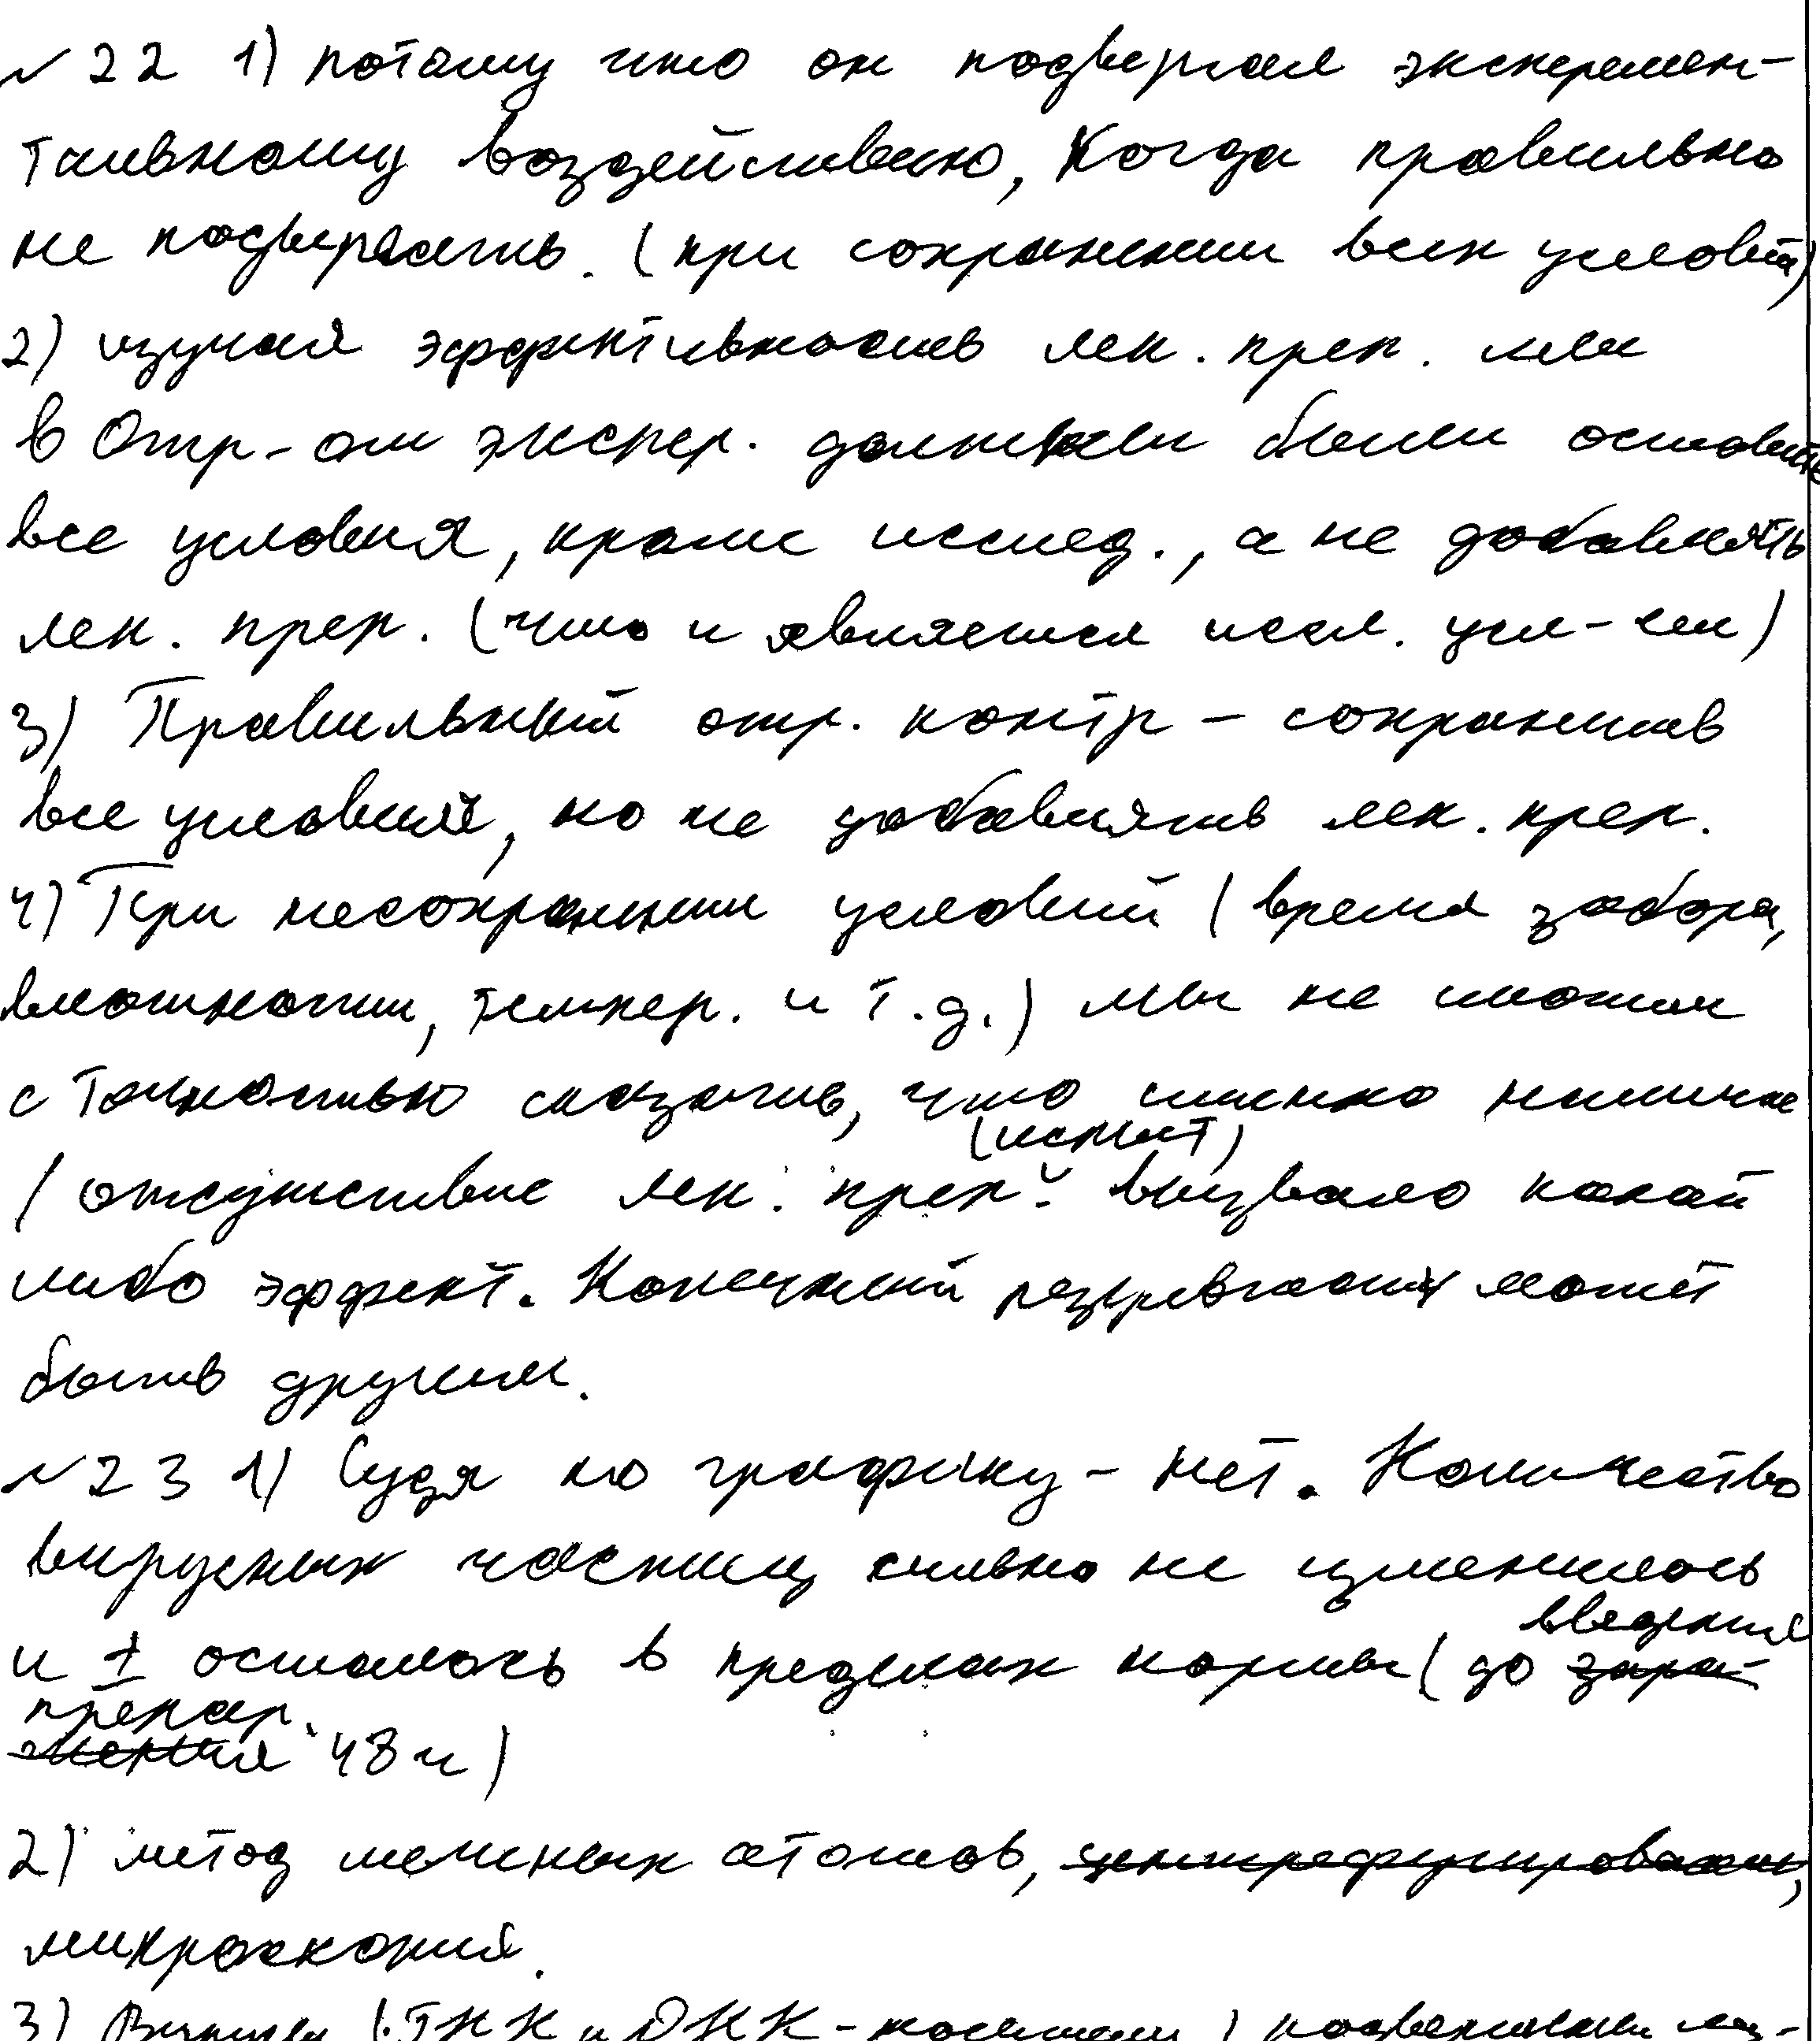 № 22 1) потому что он подвергал эксперемен-
тальному воздействию, Когда правильно
не подвергать. (при сохранении всех условий)
2) изучая эффективность лек. преп. мы
в Отр-ом экспер. должны были оставить
все условия, кроме исслед., а не добавлять
лек. преп. (что и является иссл. усл-ем)
3) Правильный отр. контр - сохранить
все условий, но не добавлять лек. преп.
4) При несохранении условий (время забора,
влажности, темпер. и т.д.) мы не можем
с точностью сказать, что именно наличие
/ отсутствие лек. преп. (испыт) вызвало какой
либо эффект. Конечный результат может
быть другим.
№ 23 1) Судя по графику - нет. Количество
вирусных частиц сильно не изменилось
и ± осталось в пределах нормы (до введения
препар. 48 ч)
2) метод меченых атомов, центрефугирование,
микроскопия.
3) Вирусы (РНК и ДНК -